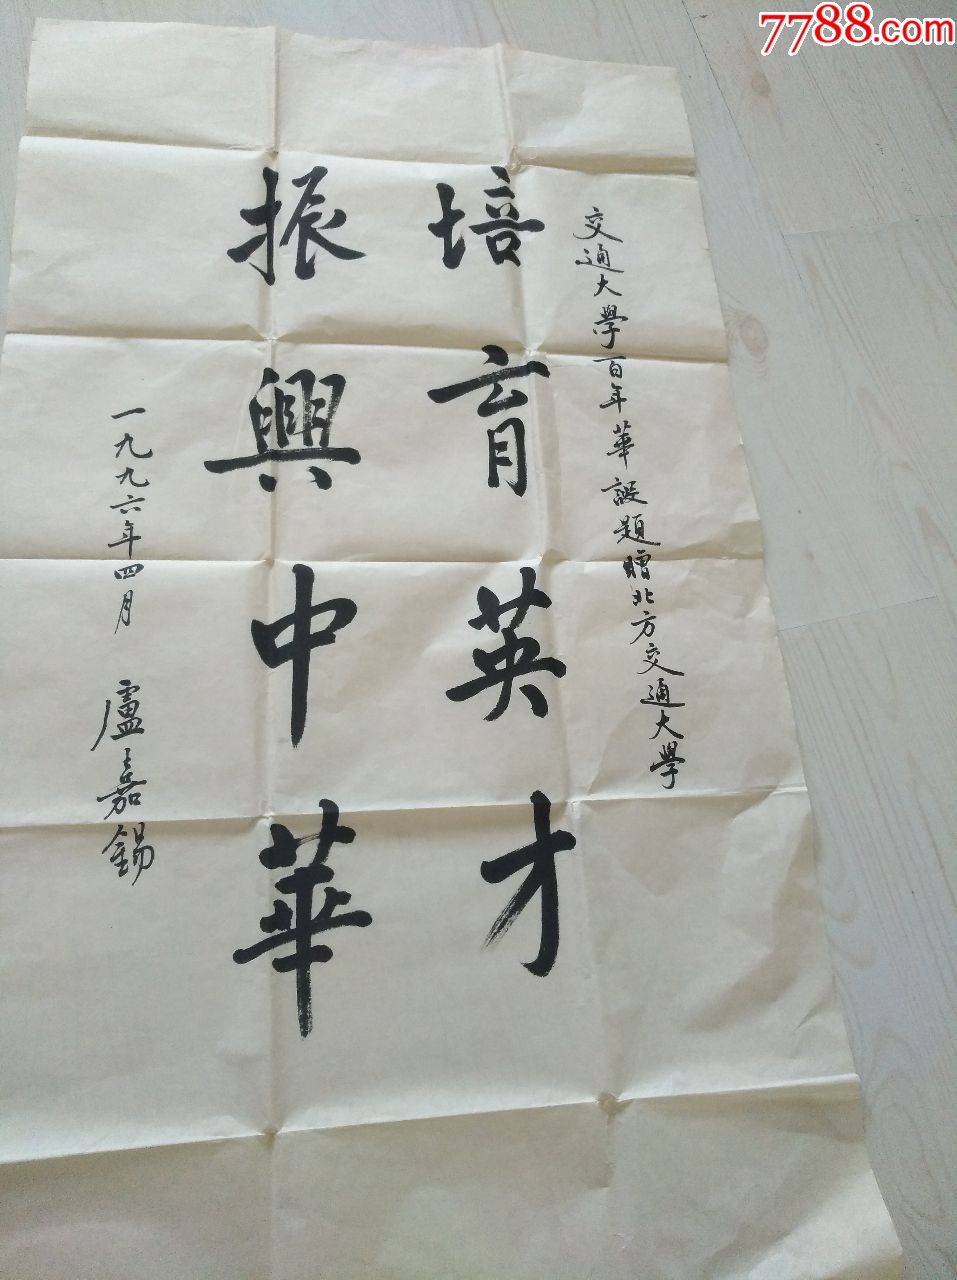 7788.com
交通大學百年華誕題贈北方交通大學
培育英才
振興中華
一九九六年四月 盧嘉錫